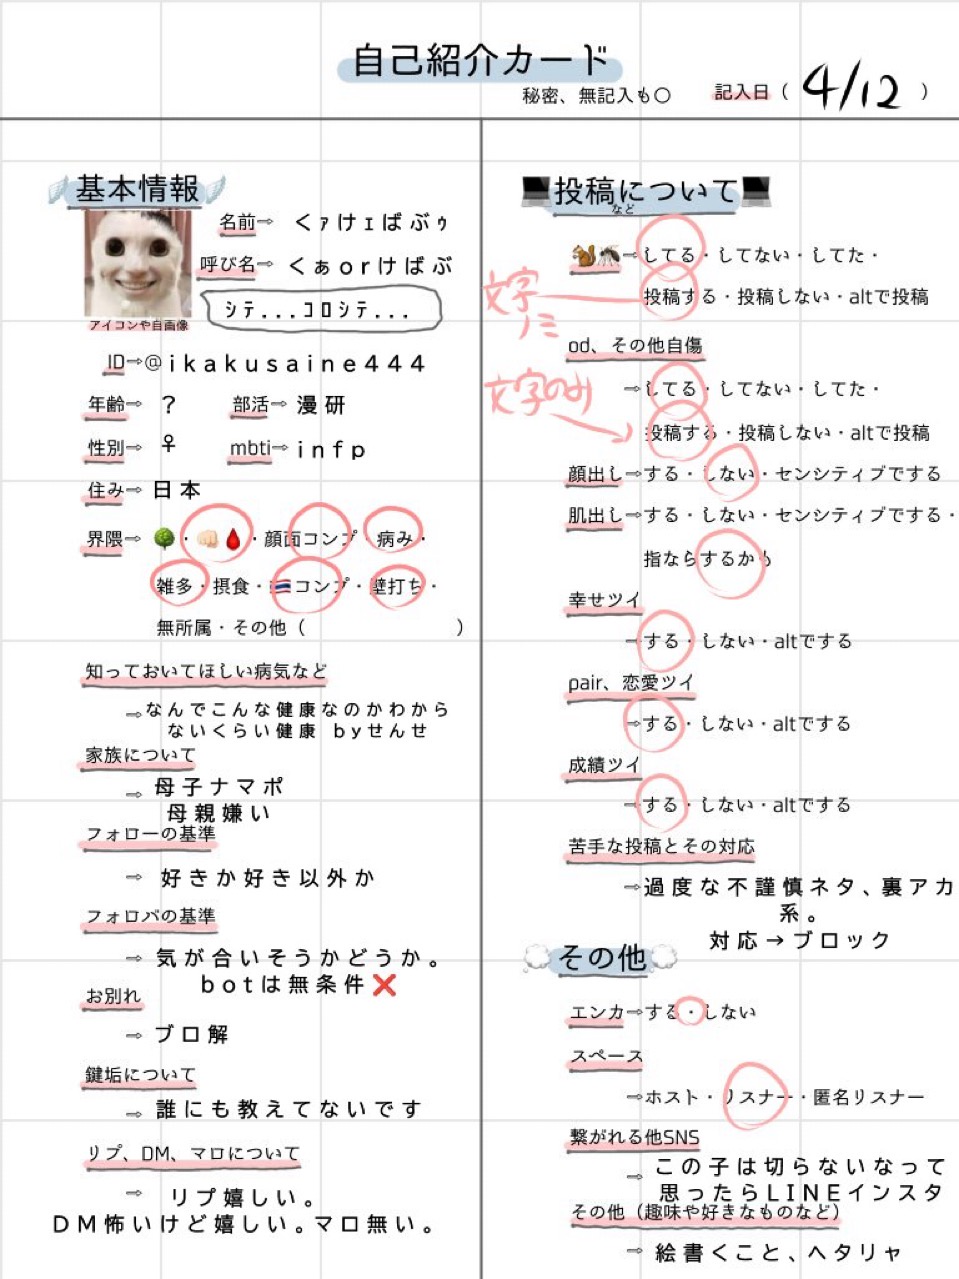 自己紹介カード
秘密、無記入も〇
記入日（ 4/12 ）
🪽基本情報🪽
名前⇨ くァけェばぶゥ
呼び名⇨ くぁorけばぶ
ｼﾃ...ｺﾛｼﾃ...
アイコンや自画像
ID⇨@ikakusaine444
年齢⇨ ？ 部活⇨ 漫研
性別⇨ ♀ mbti⇨ infp
住み⇨ 日本
界隈⇨ 🌳・👊🏻🩸・顔面コンプ・病み・
雑多・摂食・🇹🇭コンプ・壁打ち・
無所属・その他（ ）
知っておいてほしい病気など
⇨なんでこんな健康なのかわから
ないくらい健康 byせんせ
家族について
⇨ 母子ナマポ
母親嫌い
フォローの基準
⇨ 好きか好き以外か
フォロバの基準
⇨ 気が合いそうかどうか。
botは無条件❌
お別れ
⇨ ブロ解
鍵垢について
⇨ 誰にも教えてないです
リプ、DM、マロについて
⇨ リプ嬉しい。
DM怖いけど嬉しい。マロ無い。
💻投稿について💻
など
🐿🦟⇨してる・してない・してた・
文字ノミ
投稿する・投稿しない・altで投稿
od、その他自傷
⇨してる・してない・してた・
文字のみ
投稿する・投稿しない・altで投稿
顔出し⇨する・しない・センシティブでする
肌出し⇨する・しない・センシティブでする・
指ならするかも
幸せツイ
⇨する・しない・altでする
pair、恋愛ツイ
⇨する・しない・altでする
成績ツイ
⇨する・しない・altでする
苦手な投稿とその対応
⇨過度な不謹慎ネタ、裏アカ
系。
対応→ブロック
💭その他💭
エンカ⇨する・しない
スペース
⇨ホスト・リスナー・匿名リスナー
繋がれる他SNS
⇨ この子は切らないなって
思ったらLINEインスタ
その他（趣味や好きなものなど）
⇨ 絵書くこと、ヘタリャ